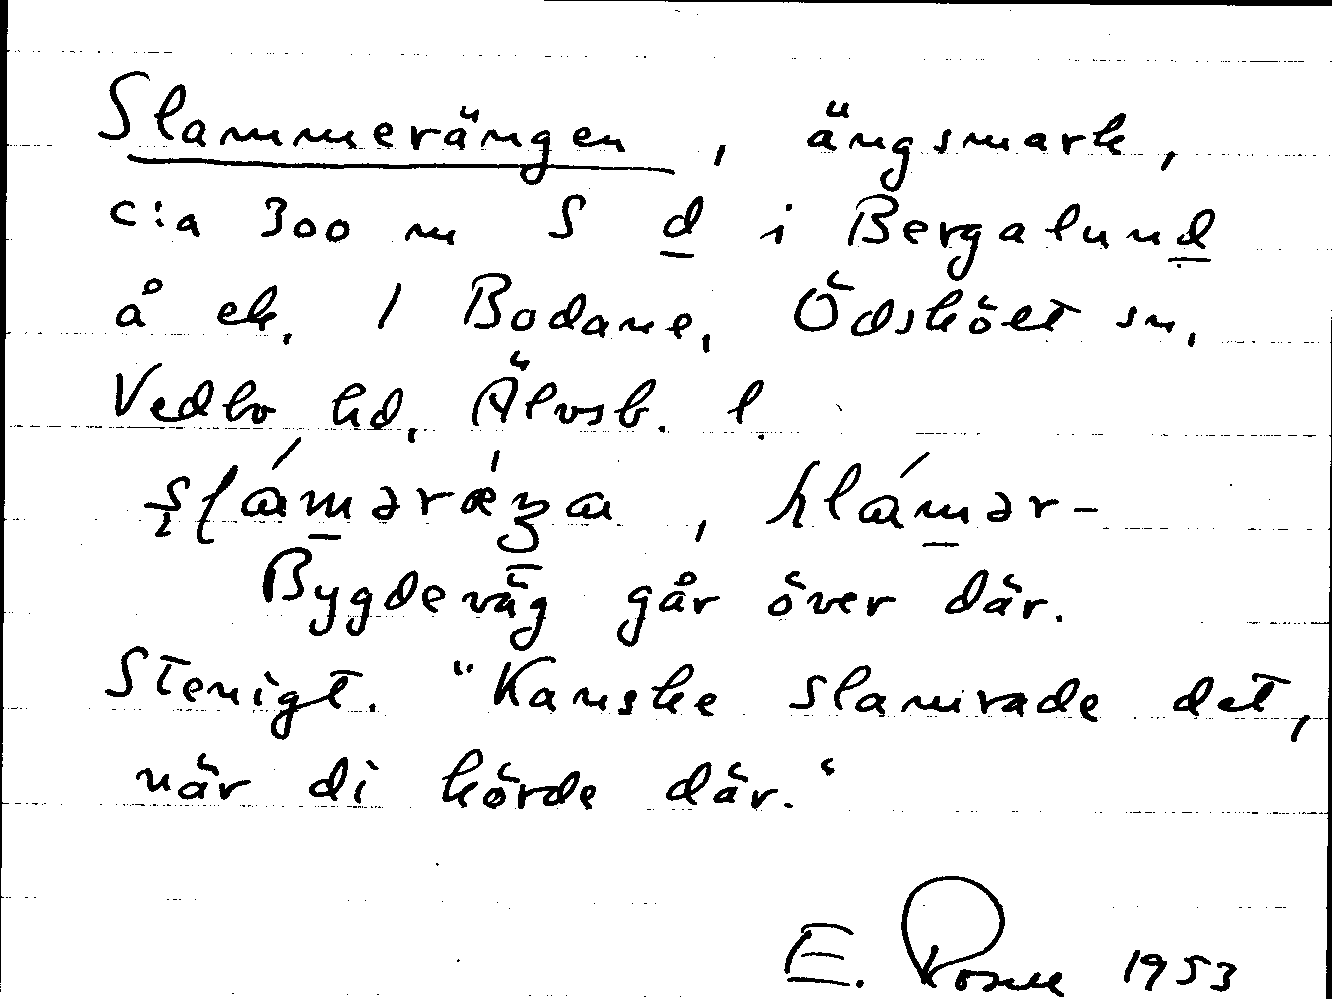 Slammerängen, ängsmark,
c:a 300 m S d i Bergalund
å ek. 1 Bodane, Ödskölt sn,
Vedbo hd, Älvsb. l.
Bygdeväg går över där.
Stenigt. "Kanske slamrade det,
när di körde där."
E. Rosell 1953